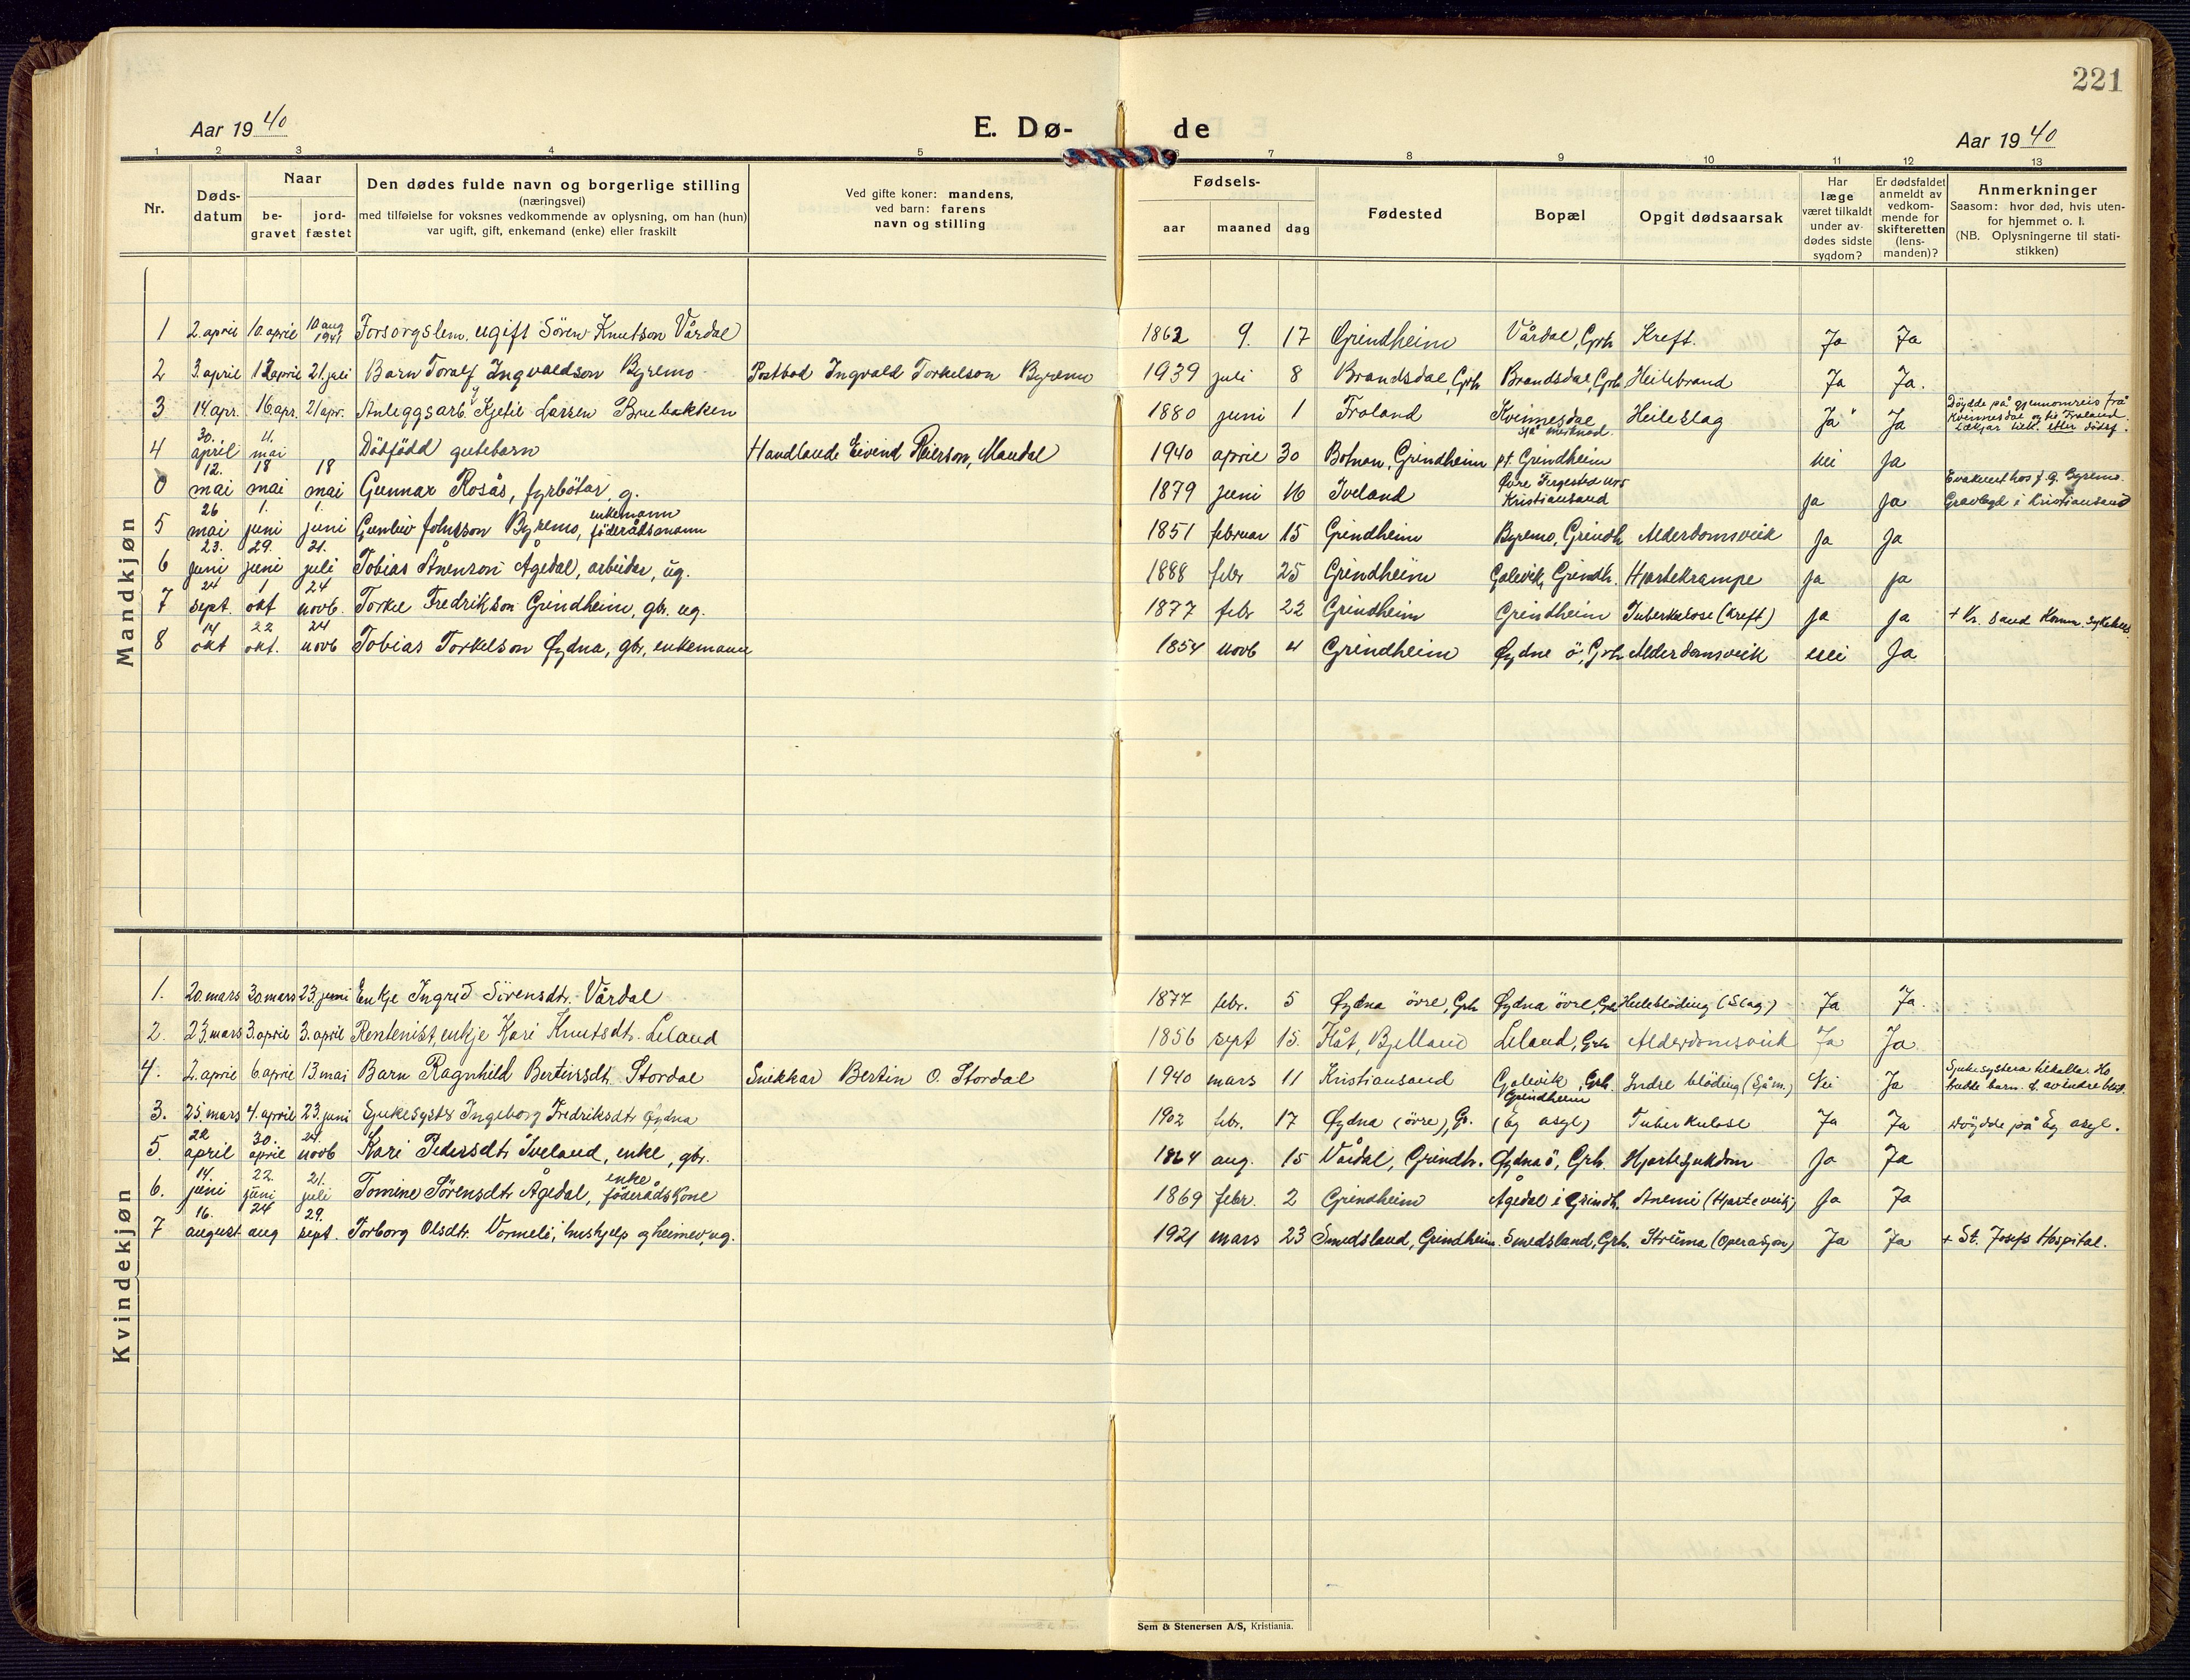 221
Aar 1940
E. Dø-
de
Aar 1940
1 2 3 4 5 7 8 9 10 11 12 13
Nr.
Døds-
datum
Naar
be-
gravet
jord-
fæstet
Den dødes fulde navn og borgerlige stilling
(næringsvei)
med tilføielse for voksnes vedkommende av oplysning, om han (hun)
var ugift, gift, enkemand (enke) eller fraskilt
Ved gifte koner: mandens,
ved barn: farens
navn og stilling
Fødsels-
aar maaned dag
Fødested
Bopæl
Opgit dødsaarsak
Har
læge
været tilkaldt
under av-
dødes sidste
sygdom?
Er dødsfaldet
anmeldt av
vedkom-
mende for
skifteretten
(lens-
manden)?
Anmerkninger
Saasom: hvor død, hvis uten-
for hjemmet o. l.
(NB. Oplysningerne til stati-
stikken)
Mandkjøn
1 2. april 10. april 10. aug 1941 Forsorgslem, ugift Sören Knutson Vårdal 1862 9. 17 Grindheim Vårdal, Grh Kreft. Ja Ja
2 3. april 12 april 21. juli Barn Toralf Ingvaldson Byremo Postbod Ingvald Torkelson Byremo 1939 juli 8 Brandsdal, Grh Brandsdal, Grh Heilebrand Ja Ja.
3 14 apr. 16. apr. 21 apr. Anleggsarb. Kjetil Larsen Brubakken 1880 juni 1 Froland Kvinnesdal sjå merknad. Heileslag Ja Ja Döydde på gjennomreis frå Kvinnesdal og til Froland.
4 30. april 4. mai Dödfödd gutebarn Handlande Eivind Reierson, Mandal 1940 april 30 Botnan, Grindheim pt. Grindheim Nei Ja
0 12. mai 18 mai 18 mai Gunnar Rosås, fyrbötar, g. 1879 juni 16 Iveland Kristiansand Ja Ja Evakuert hos J. G. Byremo. Gravlagd i Kristiansand
5 26 mai 1. juni 1. juni Gunleiv Johnsson Byremo, enkemann föderådsmann 1851 februar 15 Grindheim Byremo, Grindh. Alderdomsveik Ja Ja
6 23. juni 29. juni 21. juli Tobias Ånenson Ågedal, arbeider, ug. 1888 febr 25 Grindheim Galevik, Grindh. Hjartekrampe Ja Ja
7 24 sept. 1 okt 24 novb. Torkel Fredrikson Grindheim, gbr. ug. 1877 febr 22 Grindheim Grindheim Tuberkelose (kreft) Ja Ja + Kr. sand Komm. sykehus
8 14 okt 22 okt. 24 novb Tobias Torkelson Øydna, gbr, enkemann 1854 novb 4 Grindheim Øydne ö, Grh Alderdomsveik nei Ja
Kvindekjøn
1. 20. mars 30. mars 23. juni Enkje Ingrid Sörensdtr. Vårdal 1877 febr. 5 Øydna övre, Grh Øydna övre, Grh Heileblöding (Slag) Ja Ja.
2. 23. mars 3. april 3. april Rentenist, enkje Kari Knutsdtr. Leland 1856 sept 15. Flåt, Bjelland Leland, Grh Alderdomsveik Ja Ja.
4. 2. april 6. april 13. mai Barn Ragnhild Bertinsdtr. Stordal Snikkar Bertin O. Stordal 1940 mars 11 Kristiansand Galevik, Grh. Indre blöding (Sjå m.) Nei Ja
3. 25. mars 4. april 23. juni Sjukesyster Ingeborg Fredriksdtr Øydna 1902 febr. 17 Øydna (övre), Gr. Grindheim (Eg asyl) Tuberkulose Ja Ja Döydde på Eg asyl.
5. 22 april 30. april 24. novb Kari Pedersdtr Iveland, enke, gbr. 1864 aug. 15 Vårdal, Grindh. Øydna ö, Grh. Hjartesjukdom Ja Ja
6. 14. juni 22. juni 21. juli Tomine Sörensdtr Ågedal, enke föderådskone 1869 febr. 2 Grindheim Ågedal i Grindh. Anemi (Hjarteveik) Ja Ja
7 16. august 24 aug 29. sept. Torborg Olsdtr. Vormeli, hushjelp og heimev, ug. 1921 mars 23 Smedsland, Grindheim. Smedsland, Grh. Strüma (Operasjon) Ja Ja + St. Josefs Hospital.
Sem & Stenersen A/S, Kristiania.